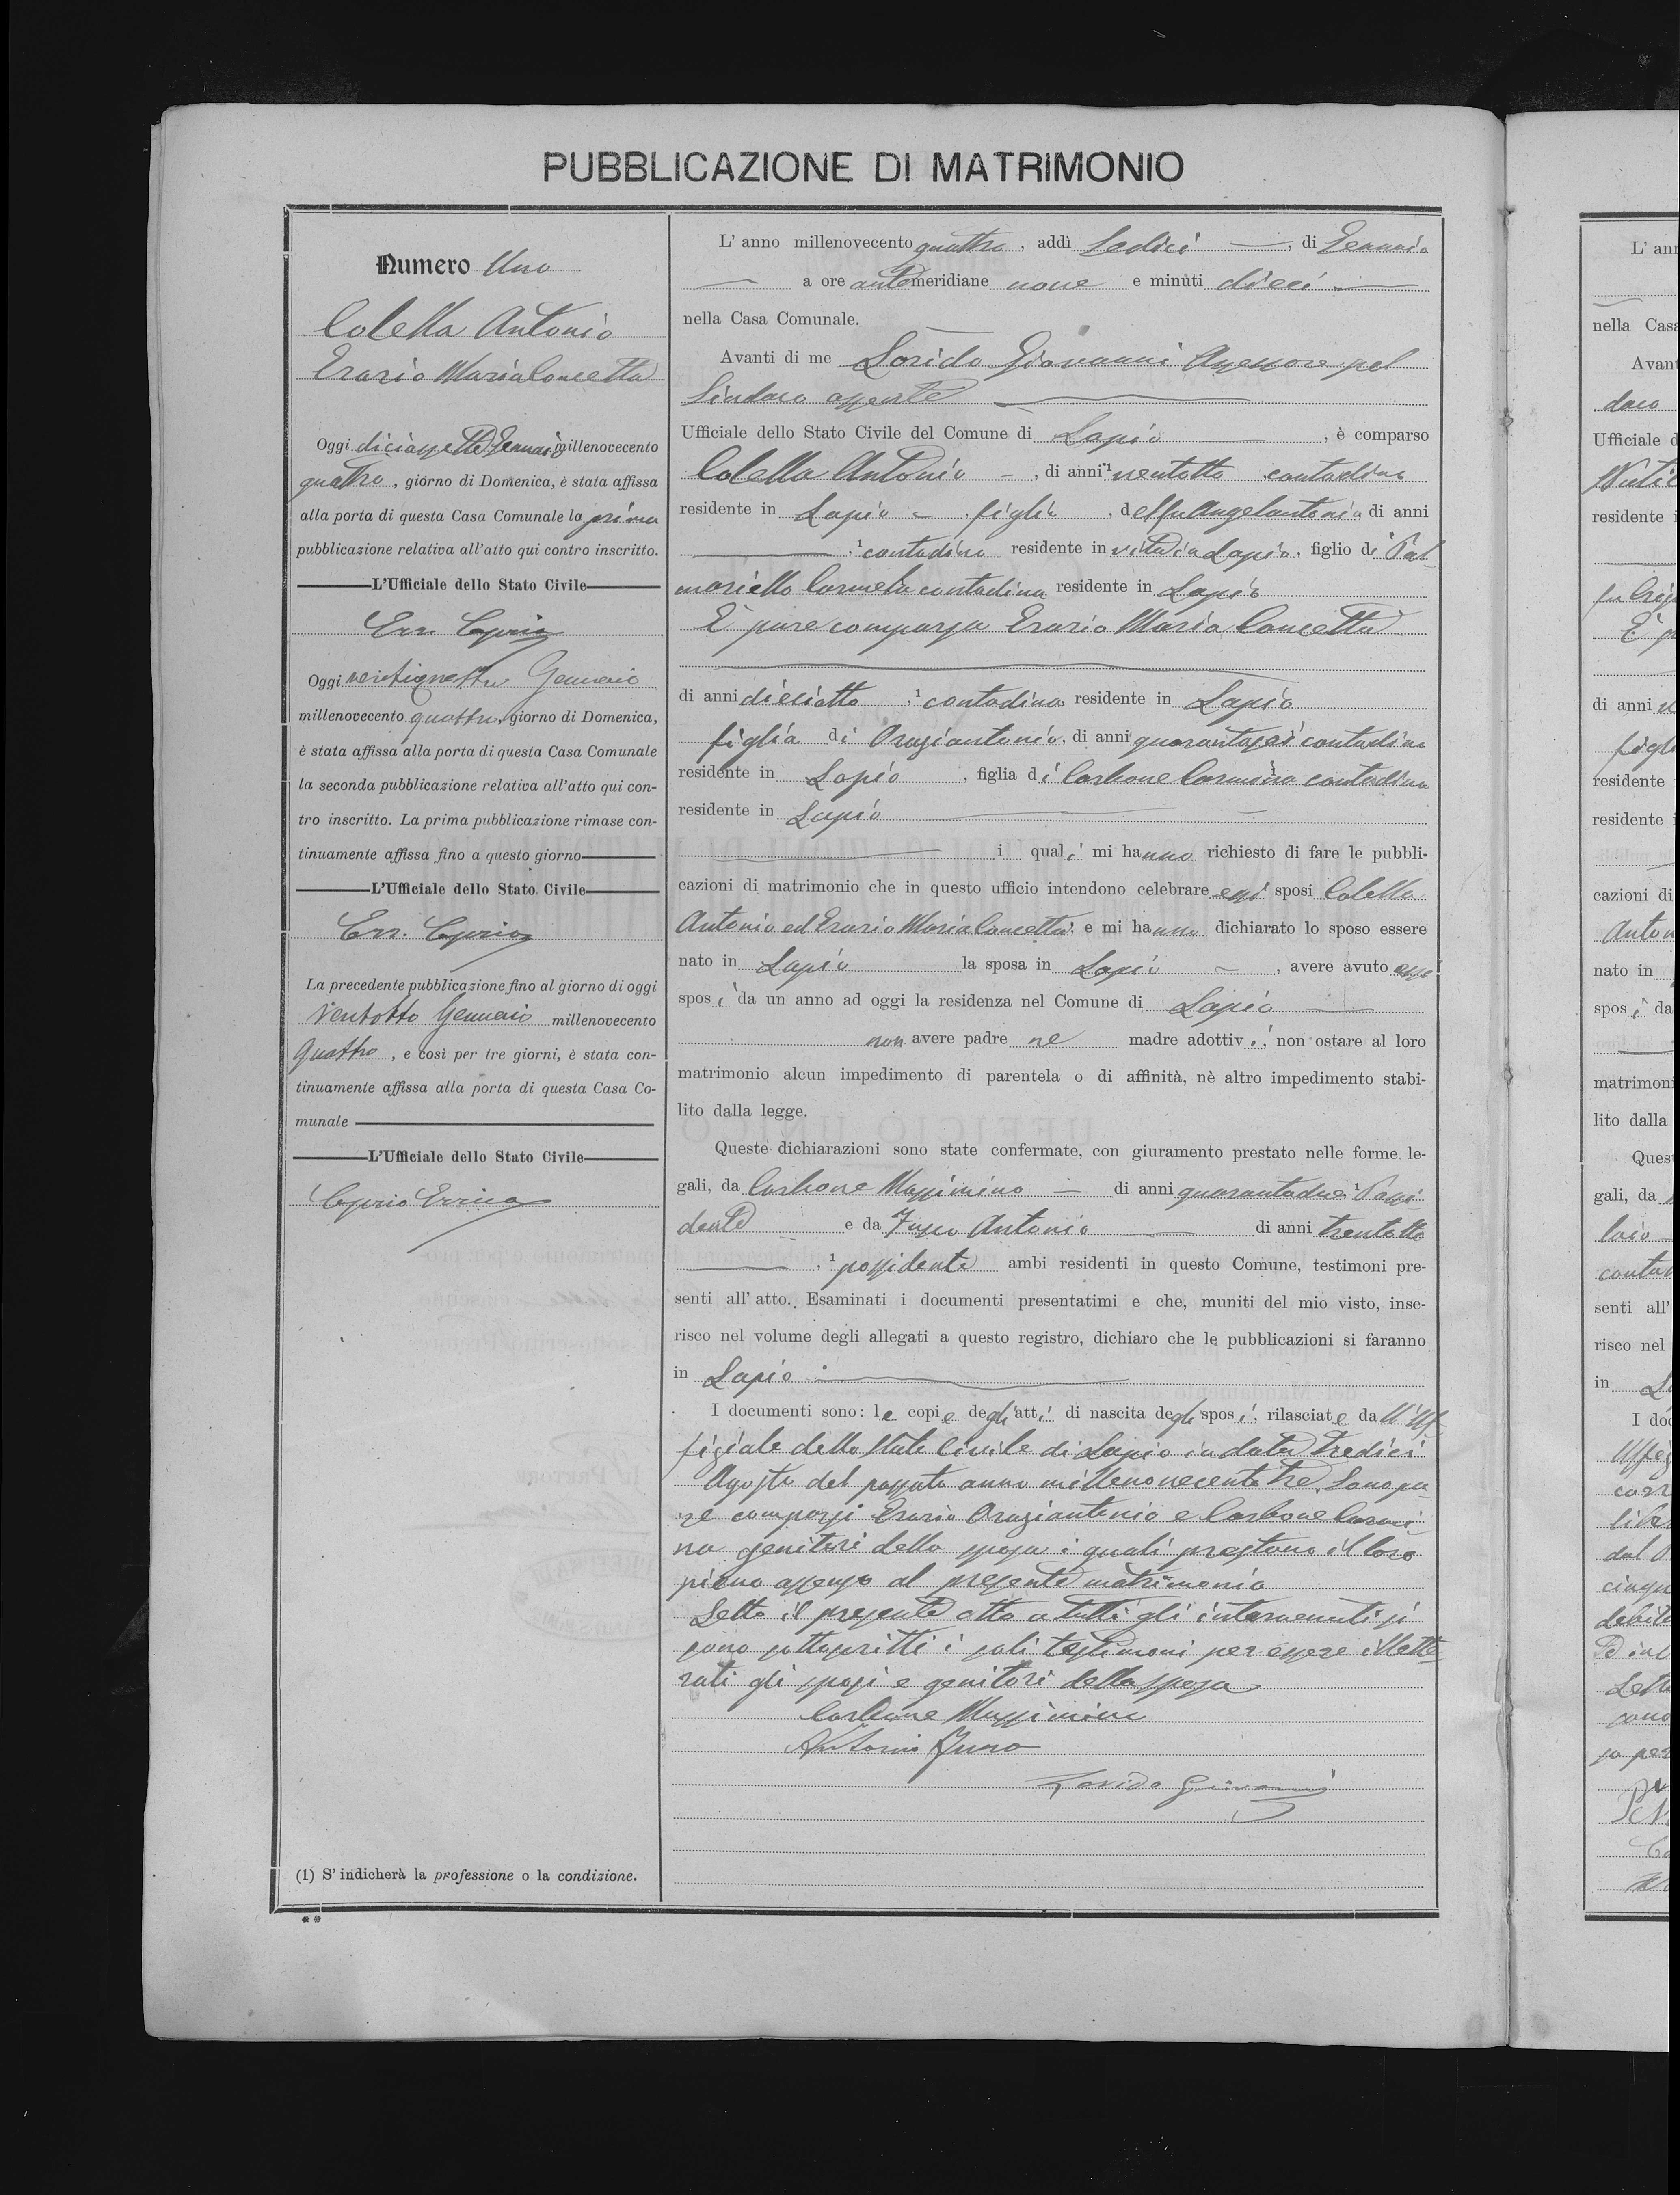 PUBBLICAZIONE DI MATRIMONIO
Numero Uno
Colella Antonio
Erario Maria Concetta
Oggi diciassette Gennaio millenovecento
quattro, giorno di Domenica, è stata affissa
alla porta di questa Casa Comunale la prima
pubblicazione relativa all'atto qui contro inscritto.
L'Ufficiale dello Stato Civile
Err. Caprio
Oggi ventiquattro Gennaio
millenovecento quattro, giorno di Domenica,
è stata affissa alla porta di questa Casa Comunale
la seconda pubblicazione relativa all'atto qui con-
tro inscritto. La prima pubblicazione rimase con-
tinuamente affissa fino a questo giorno
L'Ufficiale dello Stato Civile
Err. Caprio
La precedente pubblicazione fino al giorno di oggi
Ventotto Gennaio millenovecento
quattro, e così per tre giorni, è stata con-
tinuamente affissa alla porta di questa Casa Co-
munale
L'Ufficiale dello Stato Civile
Caprio Errico
(1) S' indicherà la professione o la condizione.
L' anno millenovecento quattro, addì Sedici, di Gennaio
a ore antemeridiane nove e minuti dieci
nella Casa Comunale.
Avanti di me Lorido Giovanni Assessore pel
Sindaco assente
Ufficiale dello Stato Civile del Comune di Lapio, è comparso
Colella Antonio, di anni ¹ ventotto contadino
residente in Lapio, figlio, del fu Angelantonio di anni
, ¹ contadino residente in vita in Lapio, figlio di Pal-
mariello Carmela contadina residente in Lapio
È pure comparsa Erario Maria Concetta
di anni dieciotto, ¹ contadina residente in Lapio
figlia di Oraziantonio, di anni quarantasei contadino
residente in Lapio, figlia di Carbone Carmina ¹ contadina
residente in Lapio
i quali mi hanno richiesto di fare le pubbli-
cazioni di matrimonio che in questo ufficio intendono celebrare essi sposi Colella
Antonio ed Erario Maria Concetta e mi hanno dichiarato lo sposo essere
nato in Lapio la sposa in Lapio, avere avuto essi
sposi da un anno ad oggi la residenza nel Comune di Lapio
non avere padre nè madre adottivi, non ostare al loro
matrimonio alcun impedimento di parentela o di affinità, nè altro impedimento stabi-
lito dalla legge.
Queste dichiarazioni sono state confermate, con giuramento prestato nelle forme le-
gali, da Carbone Massimino di anni quarantadue, ¹ Possi-
dente e da Fusco Antonio di anni trentotto
, ¹ possidente ambi residenti in questo Comune, testimoni pre-
senti all' atto. Esaminati i documenti presentatimi e che, muniti del mio visto, inse-
risco nel volume degli allegati a questo registro, dichiaro che le pubblicazioni si faranno
in Lapio
I documenti sono: le copie degli atti di nascita degli sposi, rilasciate dall'Uf-
fiziale dello Stato Civile di Lapio in data tredici
Agosto del passato anno millenovecentotre. Sono pu-
re comparsi Erario Oraziantonio e Carbone Carmi-
na genitori della sposa i quali prestano il loro
pieno assenso al presente matrimonio
Letto il presente atto a tutti gli intervenuti si
sono sottoscritti i soli testimoni per essere illette-
rati gli sposi e genitori della sposa
Carbone Massimino
Antonio Fusco
Lorido Giovanni
L' an
nella Casa
Avant
daco
Ufficiale d
residente
È p
di anni
figli
residente
residente
cazioni di
Anton
nato in
sposi da
matrimoni
lito dalla
Quest
gali, da
senti all'
risco nel
in
I do